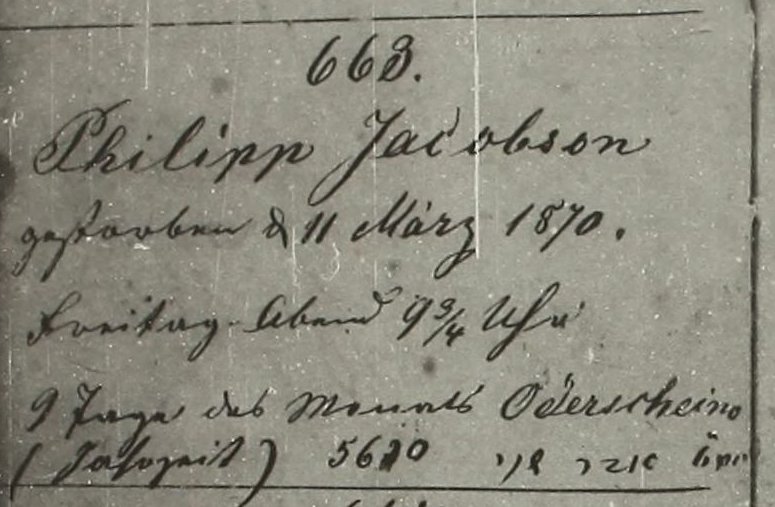 663.
Philipp Jacobson
gestorben d 11 März 1870.
Freitag Abend 9 3/4 Uhr
9 Tage des Monats Oderscheino
(Jahrzeit)